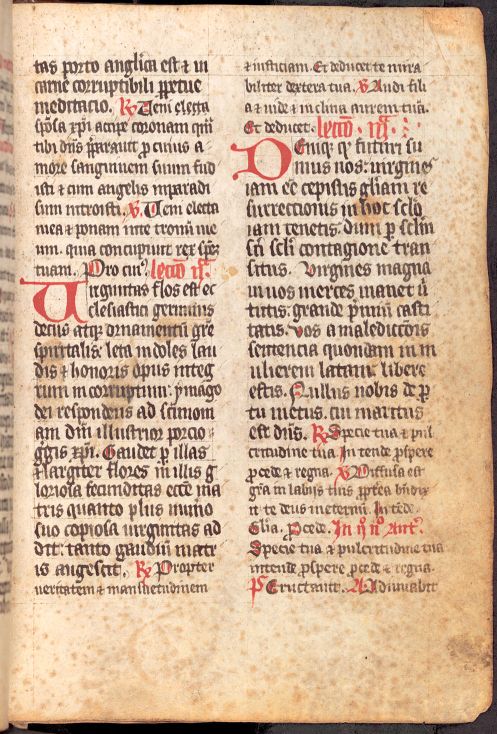 tas porto anglica est & in
carne corruptibili ꝑpetue
meditacio. ℟ Veni electa
sp̄osa xp̄i accipe coronam quā
tibi dn̄s p̄parauit ꝓ cuius a
more sanguinem suum fud
isti & cum angelis inparadi
sum introisti. ℣. Veni electa
mea & ponam inte tronū me
um. quia concupiuit rex spē
tuam. Pro cuiꝰ. lectō ıȷᵃ.
Virginitas flos est ec
clesiastici germinis
decus atqꝫ ornamentū gr̄e
spiritalis. leta indoles lau
dis & honoris opus integ
rum incorruptum. ymago
dei respondens ad sc̄imoni
am dn̄i illustrior porcio
ḡgis xp̄i. Gaudet ꝑ illas
& largiter flores in illis g
loriosa fecunditas ecc̄e ma
tris quanto plus nūo
suo copiosa uirginitas ad
dit: tanto gaudiū matr
is augescit. ℟ Propter
ueritatem & mansuetudinem
& iusticiam. Et deducet te mira
biliter dextera tua. ℣ Audi fili
a & uide & inclina aurem tuā.
Et deducet. lectō. ııȷᵃ.
Deniqꝫ qꝫ futuri su
mus nos. uirgines
iam eē cepistis gl̄iam re
surrectionis in hoc sc̄lo
iam tenetis. dum ꝑ sc̄lm
sn̄ sc̄li contagione tran
situs. Virgines magna
uı uos merces manet ū
tutis. grande p̄miū casti
tatis. Vos a maledictōis
sentencia quondam in m
ulierem latam. libere
estis. Nullus nobis de ꝑ
tu metus. cui maritus
est dn̄s. ℟ Specie tua & pul
critudine tua Intende ꝓspere
ꝓcede & regna. ℣ Diffusa est
gr̄a in labijs tuis ꝓpt̄ea bn̄dix
it te deus ineternū. Intēde.
Gl̄ia. Procede. In ıȷᵒ nᵒ Antᵃ.
Specie tua & pulcritudine tua
intende ꝓspere ꝓcede & regna.
Pˢ Eructauit. A Adiuuabit